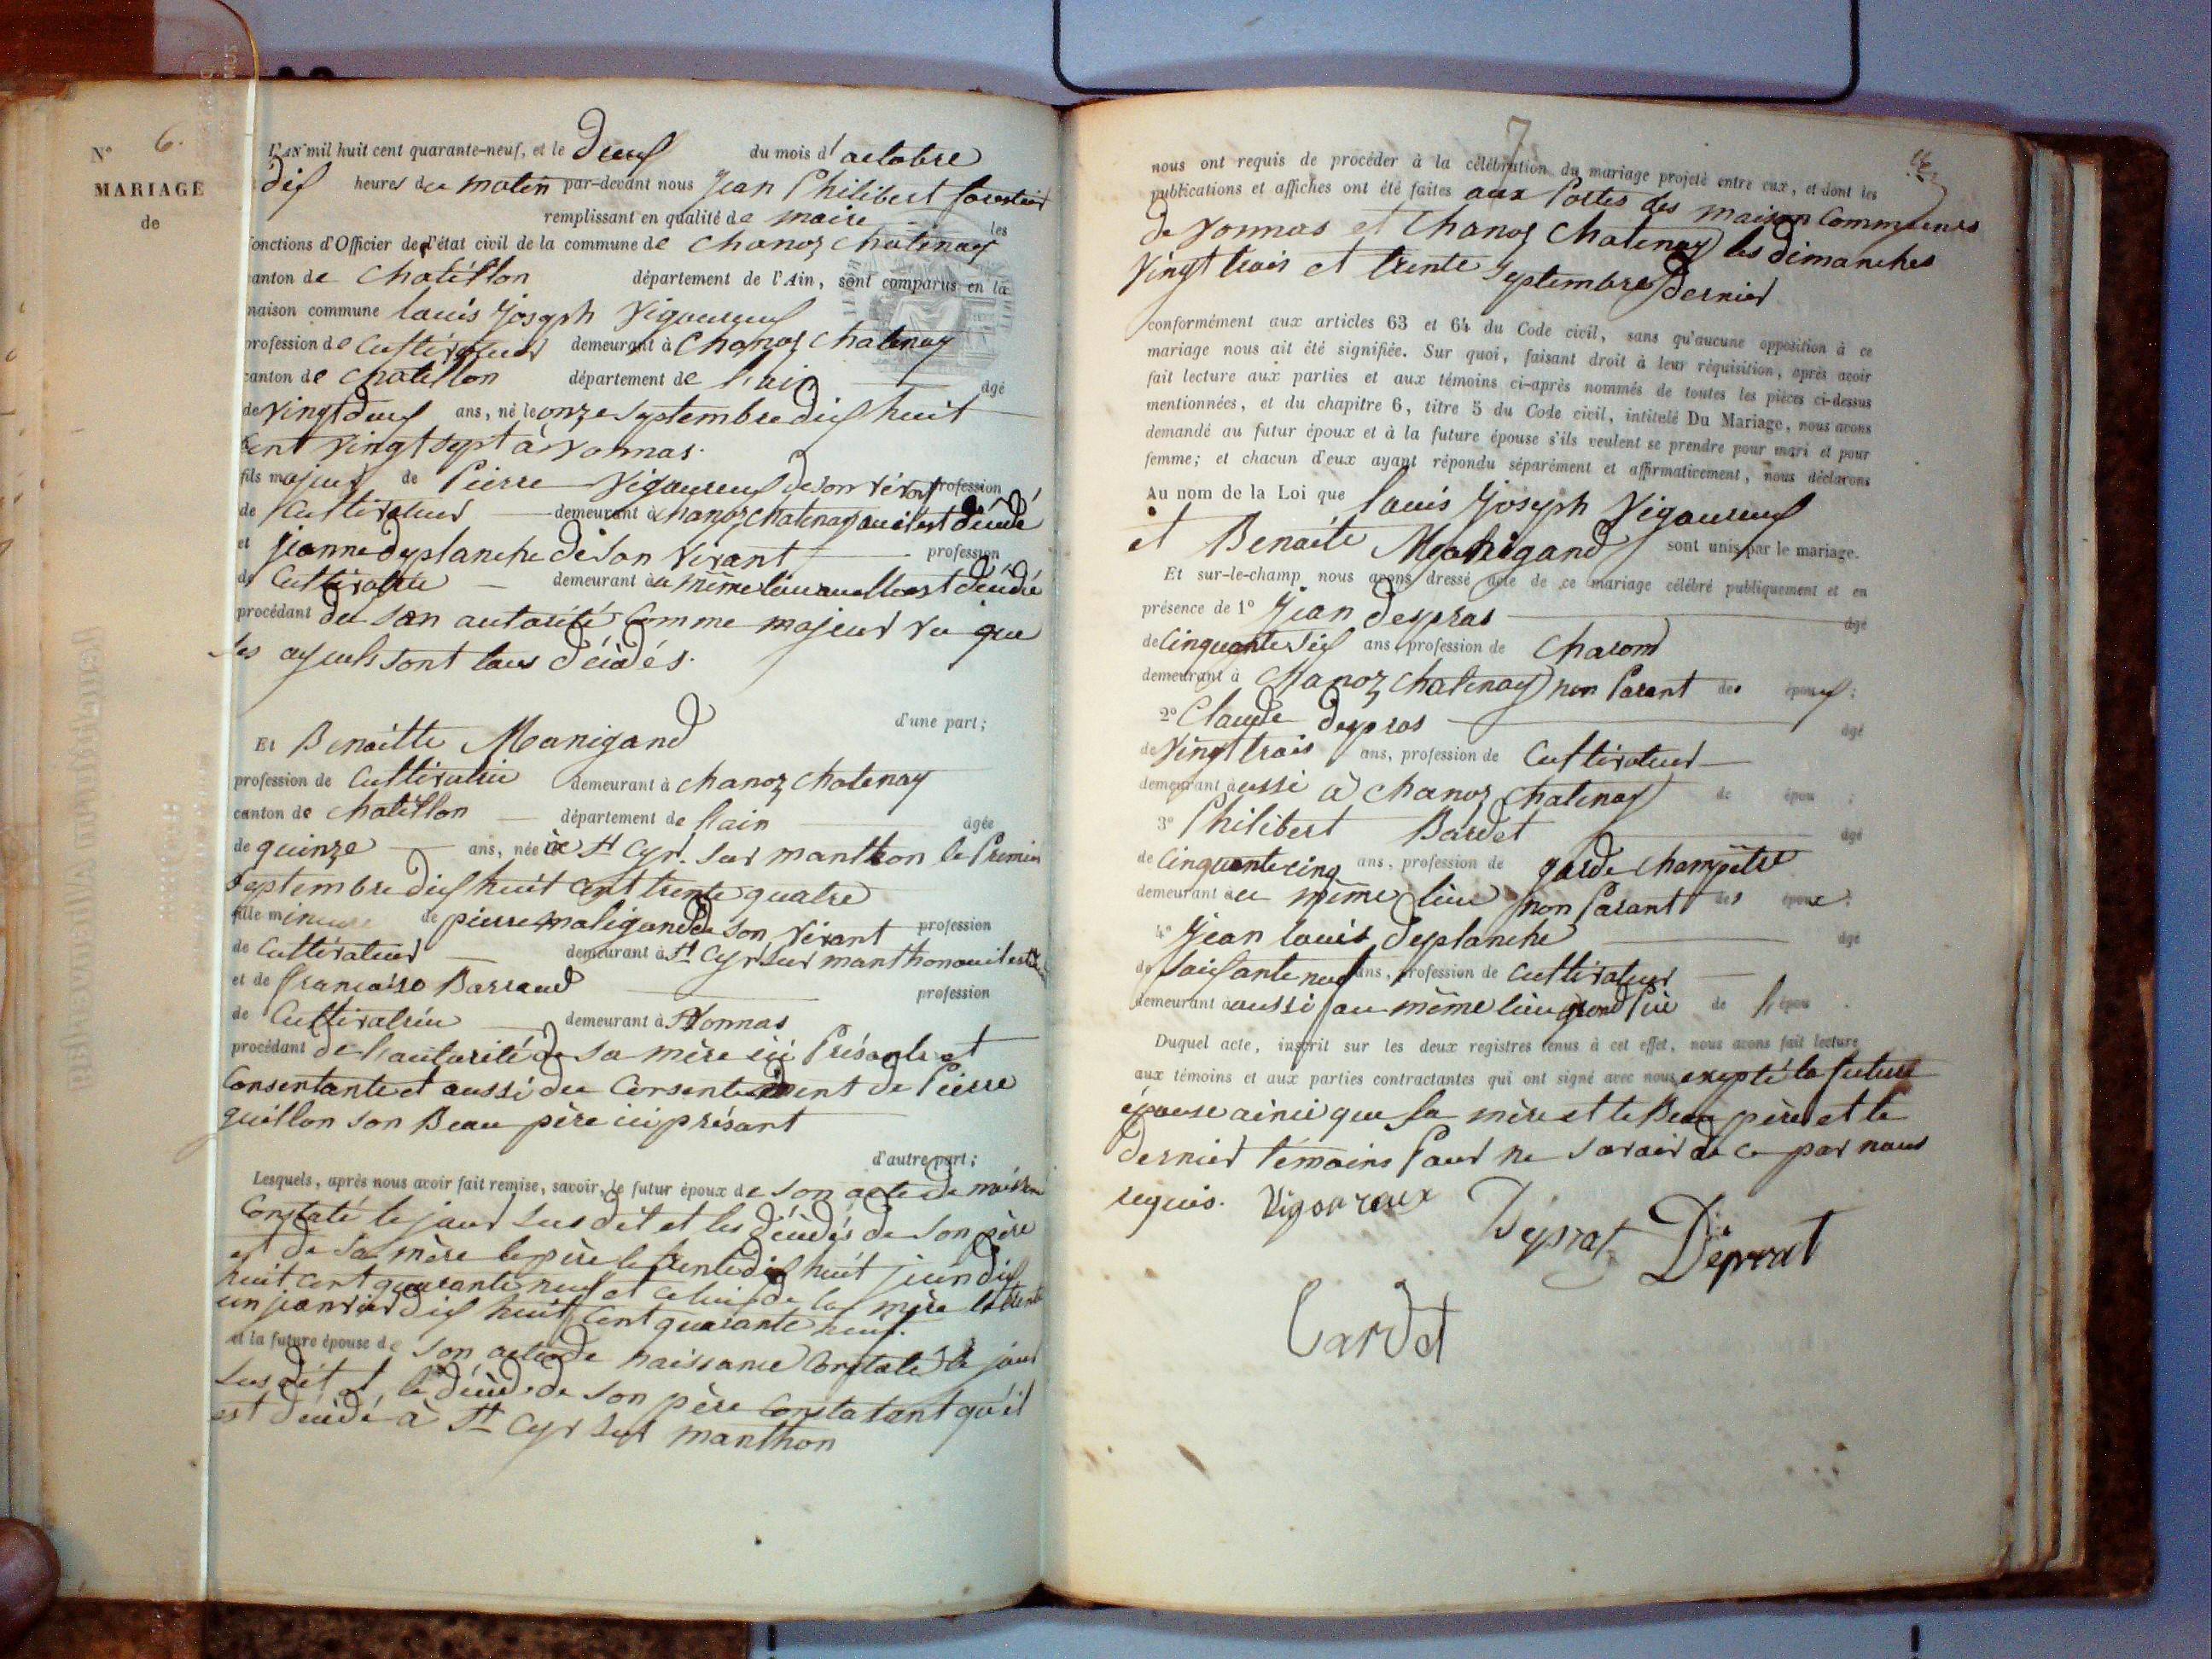 N° 6.
MARIAGE
de
L'AN mil huit cent quarante-neuf, et le deux du mois d'octobre
dix heures du matin par-devant nous Jean Philibert
remplissant en qualité de maire les
fonctions d'Officier de l'état civil de la commune de Chanoz Chatenay
canton de Chatillon département de l'Ain, sont comparus en la
maison commune louis Joseph Vigoureux
profession de Cultivateur demeurant à Chanoz Chatenay
canton de Chatillon département de l'ain âgé
de Vingt deux ans, né le onze Septembre dix huit
Cent Vingt sept à Vonnas.
fils majeur de Pierre Vigoureux de son vivant profession
de Cultivateur demeurant à Chanoz Chatenay ou il est décédé
et jeanne deplanche de son Vivant profession
de Cultivatrice demeurant au même lieu ou elle est décédée
procédant de son autorité Comme majeur vu que
les ayeuls sont tous décédés.
d'une part;
Et Benoitte Manigand
profession de Cultivatrice demeurant à chanoz chatenay
canton de Chatillon département de l'ain âgée
de quinze ans, née à St Cyr. sur manthon le Premier
Septembre dix huit cent trente quatre
fille mineure de pierre maligand de son vivant profession
de Cultivateur demeurant à St Cyr Sur manthon ou il est
et de francoise Barraud profession
de Cultivatrice demeurant à Vonnas
procédant de l'autorité de sa mère ici Présante et
Consentante et aussi du Consentement de Pierre
guillon son Beau père ici présant
d'autre part;
Lesquels, après nous avoir fait remise, savoir, le futur époux de son acte de
Constaté le jour susdit et les décédés de son père
et de sa mère le père le dix huit juin dix
huit cent quarante neuf et celui de la mère le trente
un janvier dix huit Cent quarante neuf.
et la future épouse de son acte de naissance Constaté le jour
susdit et le décède de son père Constatant qu'il
est décédé à St Cyr sur manthon
7
nous ont requis de procéder à la célébration du mariage projeté entre eux, et dont les
publications et affiches ont été faites aux Portes des maison Communes
de Vonnas et Chanoz Chatenay les dimanches
Vingt trois et trente Septembre dernier
conformément aux articles 63 et 64 du Code civil, sans qu'aucune opposition à ce
mariage nous ait été signifiée. Sur quoi, faisant droit à leur réquisition, après avoir
fait lecture aux parties et aux témoins ci-après nommés de toutes les pièces ci-dessus
mentionnées, et du chapitre 6, titre 5 du Code civil, intitulé Du Mariage, nous avons
demandé au futur époux et à la future épouse s'ils veulent se prendre pour mari et pour
femme; et chacun d'eux ayant répondu séparément et affirmativement, nous déclarons
Au nom de la Loi que louis Joseph Vigoureux
et Benoite Manigand sont unis par le mariage.
Et sur-le-champ nous avons dressé acte de ce mariage célébré publiquement et en
présence de 1° Jean despras âgé
de Cinquante six ans, profession de Charon
demeurant à Chanoz chatenay non Parant des époux;
2° Claude despras âgé
de Vingt trois ans, profession de Cultivateur
demeurant aussi à chanoz chatenay de épou ;
3° Philibert Bardet âgé
de Cinquante cinq ans, profession de garde champêtre
demeurant au même lieu non Parant des époux;
4° Jean louis deplanche âgé
de Soixante neuf ans, profession de Cultivateur
demeurant aussi au même lieu grand Père de l'épou .
Duquel acte, inscrit sur les deux registres tenus à cet effet, nous avons fait lecture
aux témoins et aux parties contractantes qui ont signé avec nous, exepté la future
épouse ainsi que sa mère et le Beau père et le
dernier témoins Pour ne savoir de ce par nous
requis. Vigoureux Déprat Déprat
Bardet